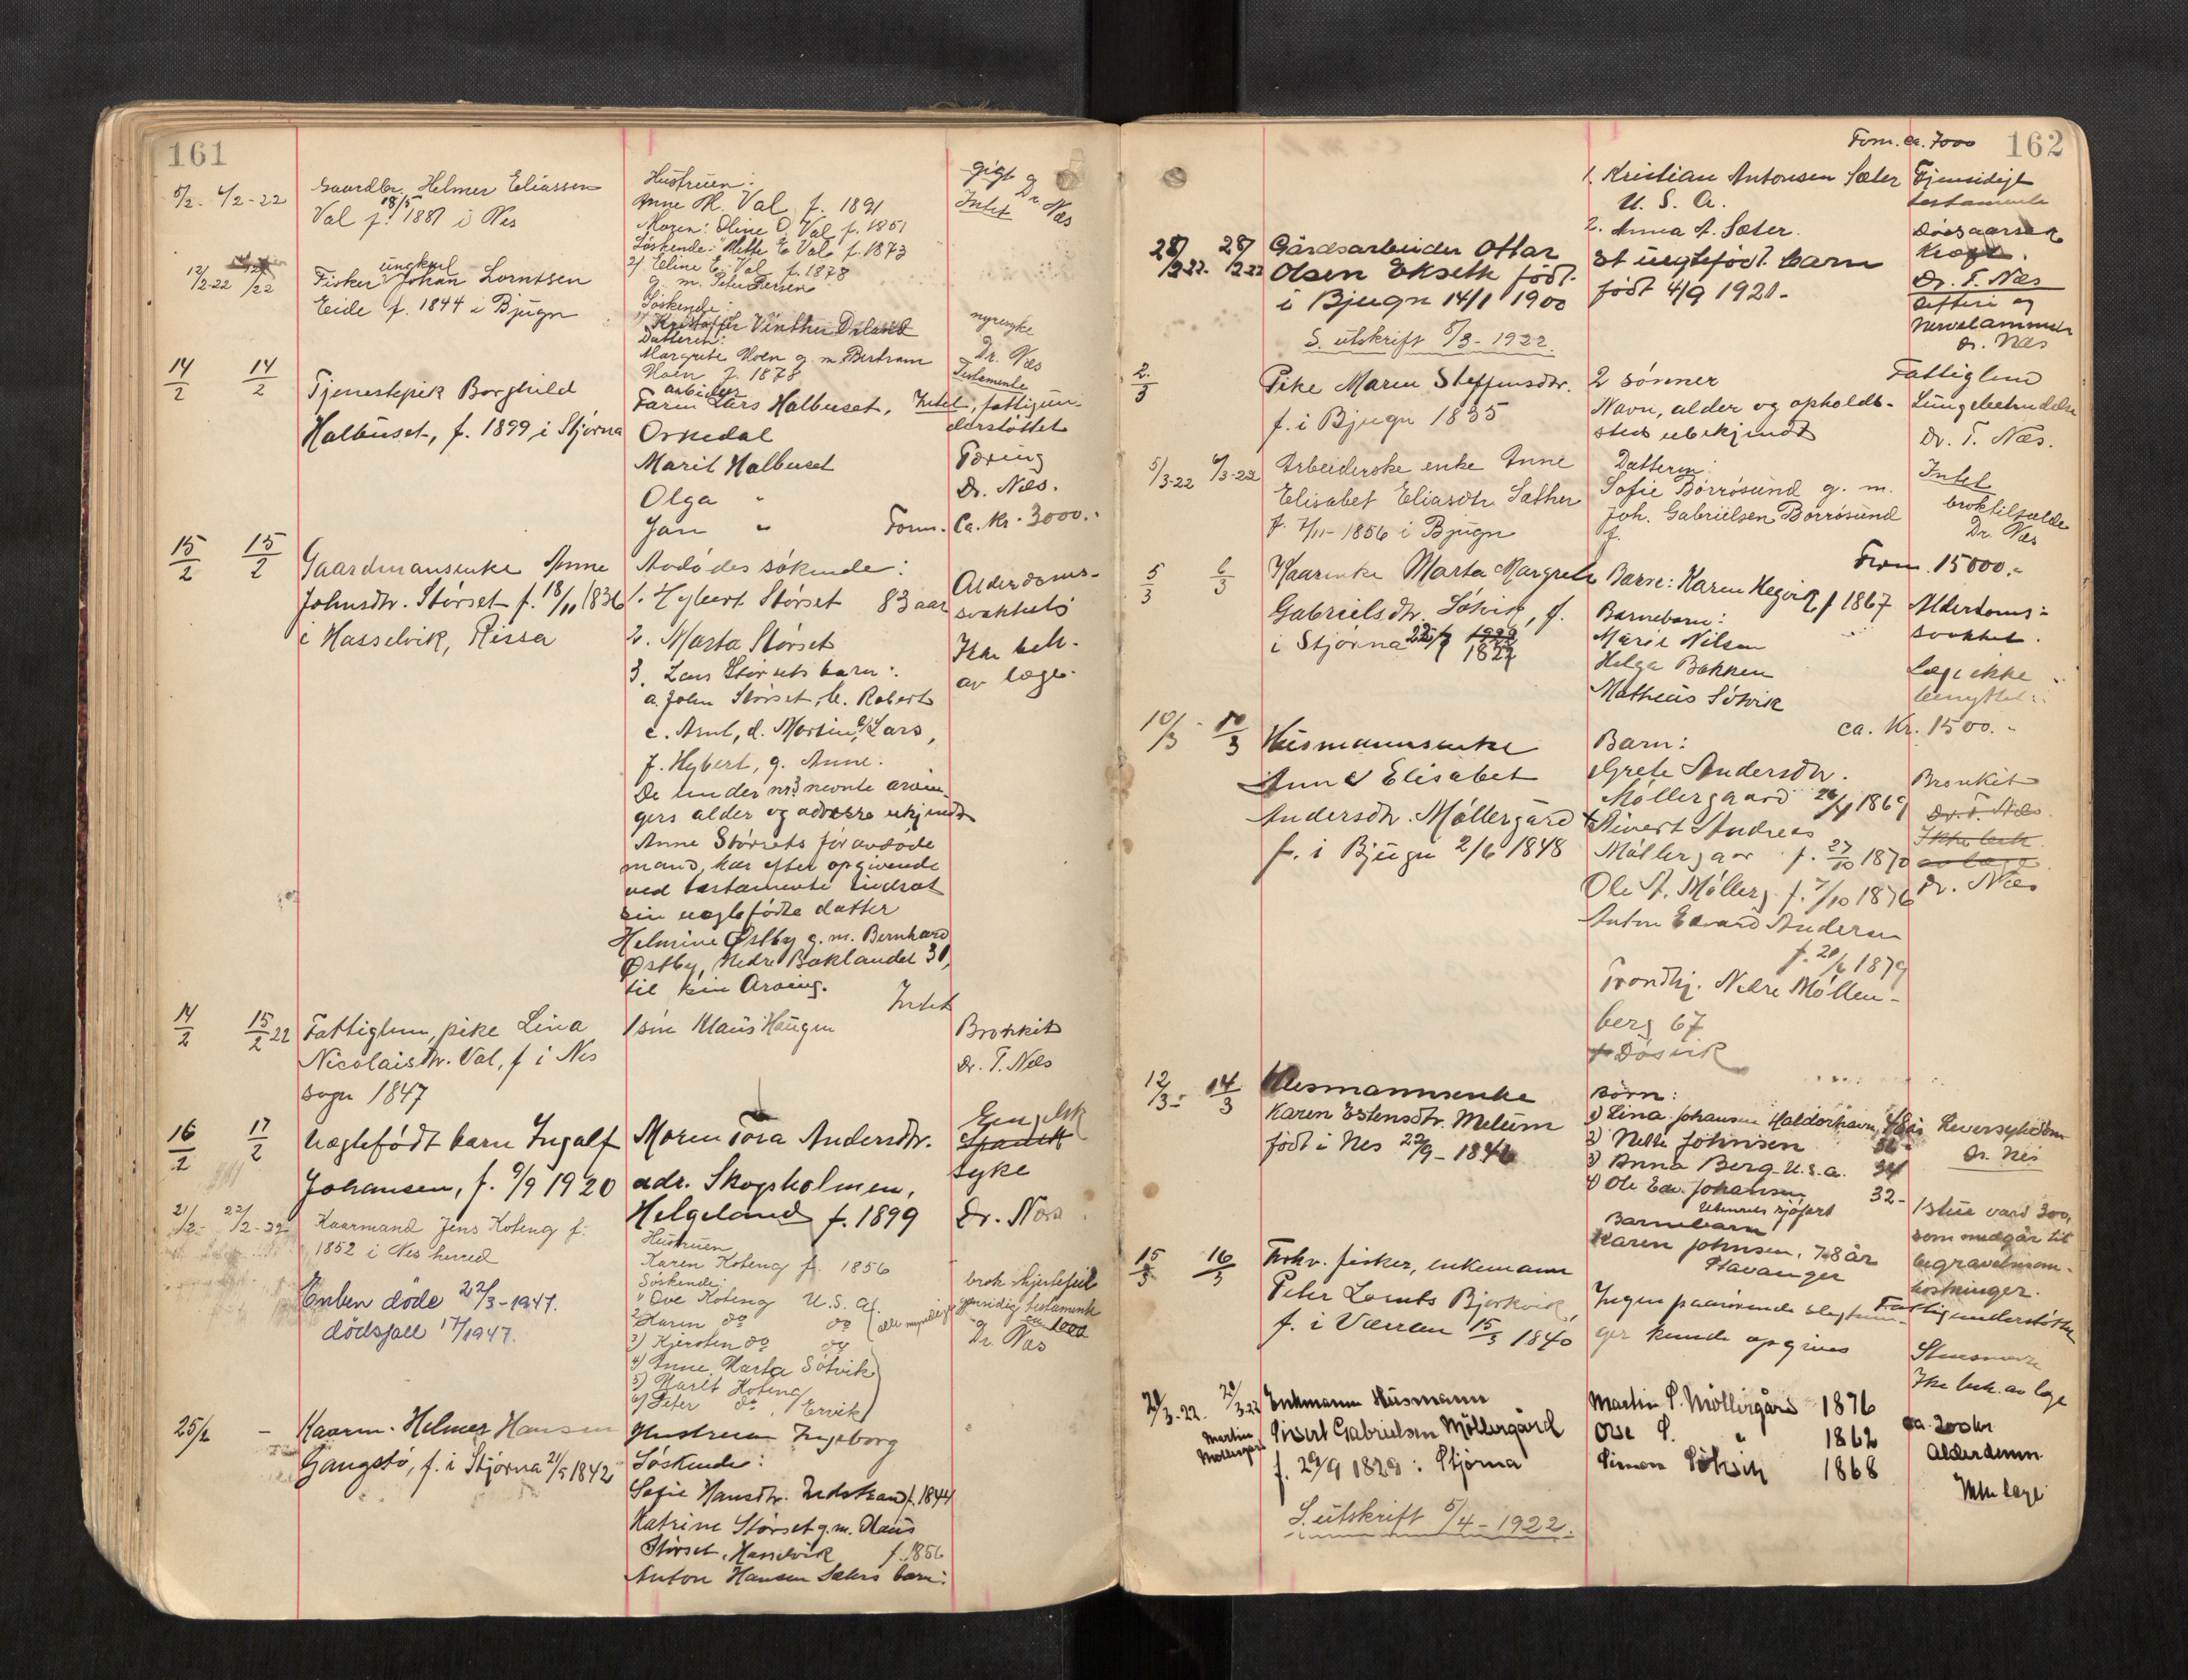 161
5/2 - 6/2-22
Gaardbr. Helmer Eliassen
Val f. 18/5 1887 i Nes
Hustruen:
Anne M. Val f. 1891
Moren: Oline O. Val f. 1851
Søskende: Mette E Val f. 1873
2) Eline E. Val f. 1878
g. m. Peter Iversen
gigt
Dr. Næs
Intet
12/2-22 12/2 22
ungkarl
Fisker Johan Lorntsen
Eide f. 1844 i Bjugn
Søskende:
Kristoffer Vinther Ørland
Datteren:
Margrete Moen g. m. Bertram
Moen f. 1878
nyresyke
Dr. Næs
Testamente
14/2 14/2
Tjenestepik Borghild
Halbuset, f. 1899 i Stjørna
arbeider
Faren Lars Halbuset,
Orkedal
Marit Halbuset
Olga "
Jan "
Intet, fattigun-
derstøttet
Tæring
Dr. Næs.
Form. Ca. kr. 3000.-
15/2 15/2
Gaardmansenke Anne
Johnsdtr. Størset f. 18/11 1836
i Hasselvik, Rissa
Avdødes søkende:
1. Hybert Størset 83 aar
2. Marta Størset
3. Lars Størsets barn:
a. John Størset, b. Robert
c. Arnt, d. Martin, e. Lars,
f. Hybert, g. Anne.
De under nr. 3 nevnte arvin-
gers alder og adresse ukjendt
Anne Størsets før avdøde
mand, har efter opgivende
ved testamente indsat
sin uegtefødte datter
Helmine Østby g. m. Bernhard
Østby, Nedre Baklandet 31,
til sin Arving.
Alderdoms-
svakhet
Ikke beh.
av læge.
14/2 15/2 22
Fattiglem, pike Lina
Nicolaisdtr. Val, f i Nes
sogn 1847
1 søn Klaus Haugen
Intet
Bronkit
Dr. T. Næs
16/2 17/2
Uegtefødt barn Ingolf
Johansen, f. 9/9 1920
Moren Tora Andersdtr.
adr. Skogsholmen,
Helgeland f. 1899
Engelsk
Spansk
syke
Dr. Næs
21/2- 22/2-22
Kaarmand Jens Koteng f.
1852 i Nes herred
Enken døde 22/3-1947.
dødsfall 17/1947.
Hustruen
Karen Koteng f. 1856
Søskende:
1) Ove Koteng U.S.A.
2) Karen do do
3) Kjersten do do
4) Anne Marta Søtvik
5) Marit Koteng
6) Peter do / Ervik
alle myndige
brok hjertefeil
gjensidig testamente
ca 1000
Dr. Næs
25/2 -
Kaarm. Helmer Hansen
Gangstø, f. i Stjørna 21/5 1842
Hustruen Ingeborg
Søskende:
Sofie Hansdtr. Indstrand f. 1844
Katrine Størset g. m. Claus
Størset, Hasselvik f. 1856
Anton Hansen Sæters barn:
162
Form. ca. 7000
1. Kristian Antonsen Sæter
U. S. A.
2. Anna A. Sæter.
Gjensidigt
testamente
Dødsaarsak
Kræft.
Dr. T. Næs
28/2-22. 28/2 22
Gårdsarbeider Ottar
Olsen Ekseth født
i Bjugn 14/1 1900
S. utskrift 8/3-1922.
et uegtefødt barn
født 4/9 1921.
Difteri og
nervelammelse
Dr. Næs
2/3
Pike Maren Steffensdtr.
f. i Bjugn 1835
2 sønner
Navn, alder og opholds-
sted ubekjendt
Fattiglem
Lungebetendelse
Dr. T. Næs.
5/3-22 6/3-22
Arbeiderske enke Anne
Elisabet Eliasdtr Sæther
f. 7/11-1856 i Bjugn
Datteren:
Sofie Borrøsund g. m.
Joh. Gabrielsen Borrøsund
f.
Intet
broktilfælde
Dr. Næs
5/3 6/3
Kaarenke Marta Margrete
Gabrielsdtr. Søtvik, f.
i Stjørna 1827
Barn: Karen Hegvik f 1867
Barnebarn:
Marie Nilsen
Helga Bakken
Matheus Søtvik
Form. 15000.-
Alderdoms-
svakhet.
Læge ikke
benyttet.
10/3 - 10/3
Husmannsenke
Anne Elisabet
Andersdtr. Møllergård
f. i Bjugn 2/6 1848
Barn:
Grete Andersdtr.
Møllergaard 26/4 1869
Sivert Andreas
Møllergaar f. 27/10 1870
Ole A. Møllerg. f. 7/10 1876
Anton Edvard Andersen
f. 20/6 1879
Trondhj. Nedre Møllen-
berg 67
Døsvik
ca. Kr. 1500.-
Bronkit
Dr. T. Næs.
Ikke beh.
av læge
Dr. Næs
12/3- 14/3
Husmannsenke
Karen Estensdtr. Melum
født i Nes 22/9-1846
Børn:
1) Lina Johansen Haldorhavn,
2) Nelle Johnsen 36
3) Anna Berg U.S.A. 34
4) Ole Edv. Johansen 32-
utenriks sjøfart
Barnebarn
Karen Johnsen, 7-8 år
Stavanger
Leversykdom
Dr. Nes
1 stue værd 300,
som medgår til
begravelsesom-
kostninger.
15/3 16/3
Forhv. fisker, enkemann
Peter Lornts Bjørkvik,
f. i Værran 15/3 1840
Ingen paarørende slegtnin-
ger kunde opgives
Fattigunderstøttet
Ikke beh. av læge
21/3-22. 21/3-22
Martin
Møllergård
Enkmann Husmann
Sivert Gabrielsen Møllergård
f. 29/9 1829 i Stjørna
S. utskrift 5/4-1922.
Martin S. Møllergård 1876
Ose S. " 1862
Simon Søtvik 1868
ca. 200 kr
Alderdomm
Ikke læge